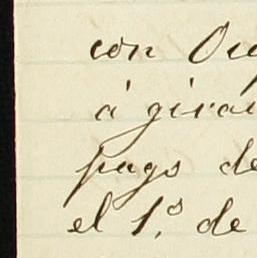 con
á girar
pago de
el 1.º de